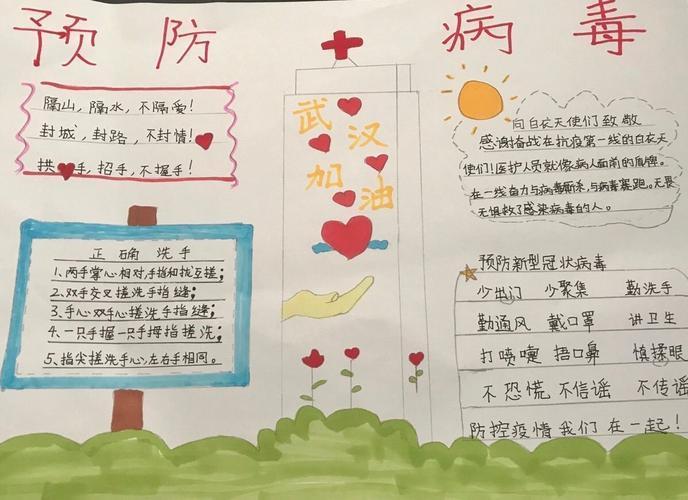 预防病毒
隔山，隔水，不隔爱！
封城，封路，不封情！
拱手，招手，不握手！
正确洗手
1、两手掌心相对，手指和拢互搓；
2、双手交叉搓洗手指缝；
3、手心双手心搓洗手指缝；
4、一只手握一只手拇指搓洗；
5、指尖搓洗手心，左右手相同。
武汉
加油
向白衣天使们致敬
感谢奋战在抗疫第一线的白衣天
使们！医护人员就像病人面前的盾牌。
在一线奋力与病毒厮杀，与病毒赛跑。无畏
无惧救了感染病毒的人。
预防新型冠状病毒
少出门 少聚集 勤洗手
勤通风 戴口罩 讲卫生
打喷嚏 捂口鼻 慎揉眼
不恐慌 不信谣 不传谣
防控疫情我们在一起！